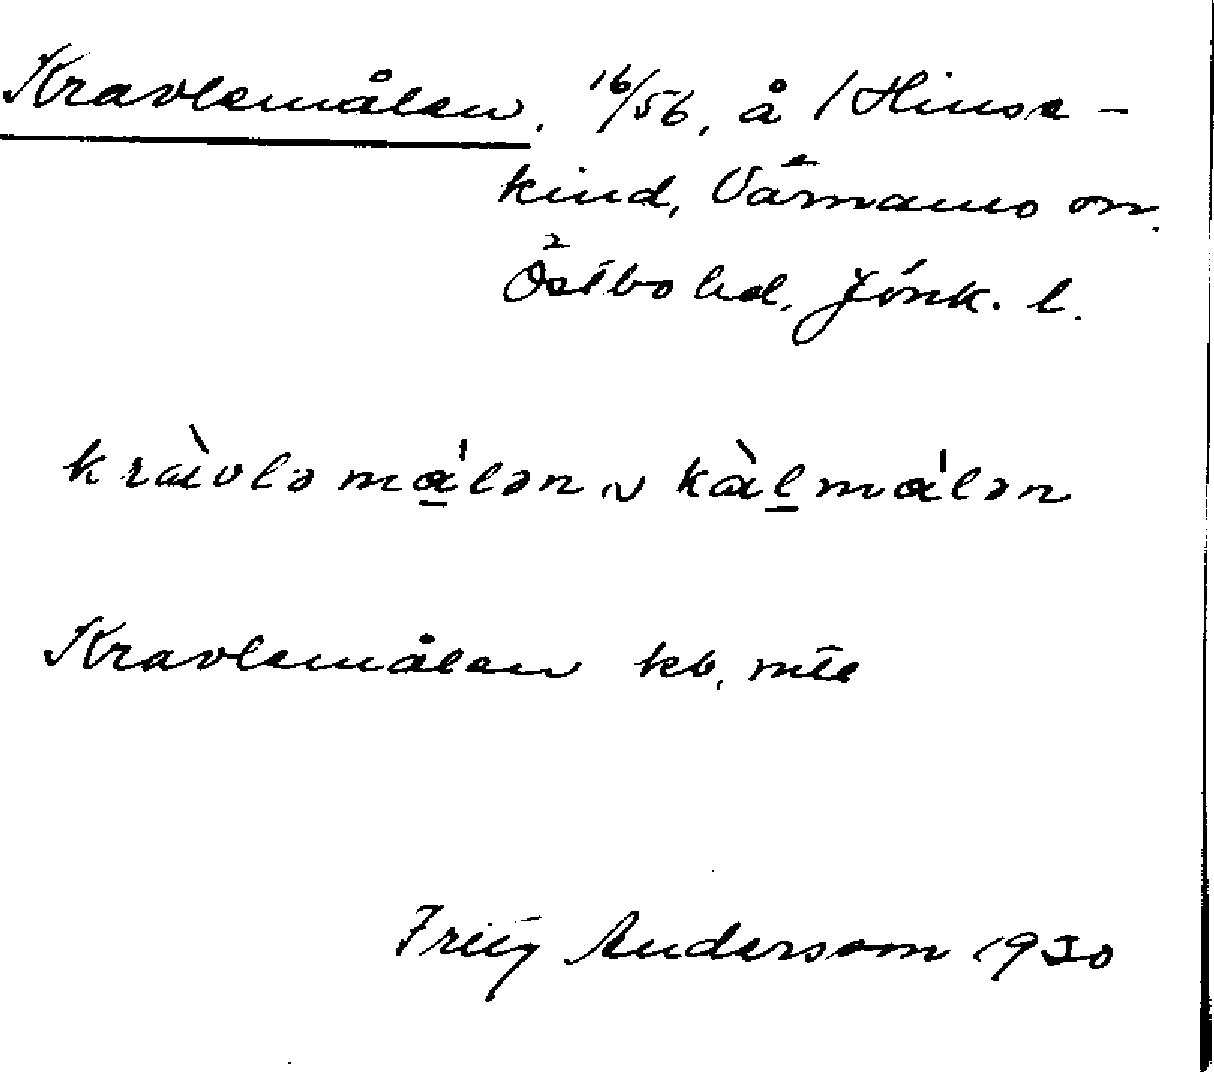 Kravlemålen, 16/56, å /Hinse-
kind, Värnamo sn.
Östbo hd. Jönk. l.
kràvlə málən ~ kàl̲málən
Kravlemålen kb, mtl
Andersson 1930